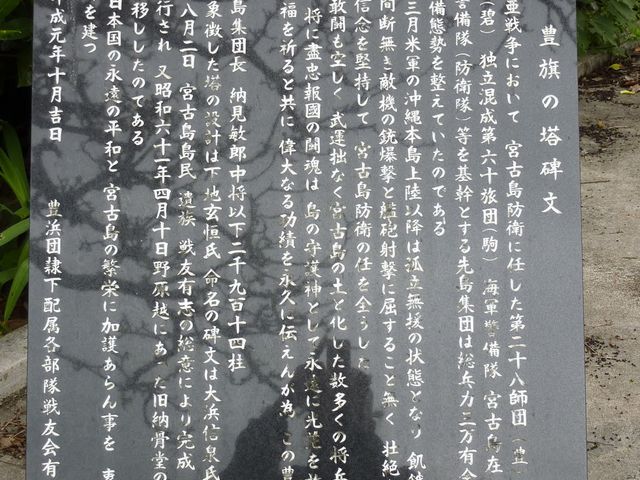 豊旗の塔碑文
亜戦争において 宮古島防衛に任した第二十八師団(豊
(碧) 独立混成第六十旅団(駒) 海軍警備隊 宮古島在
警備隊(防衛隊)等を基幹とする先島集団は総兵力三万有余
備態勢を整えていたのである
三月米軍の沖縄本島上陸以降は孤立無援の状態となり 飢餓
間断無き敵機の銃爆撃と艦砲射撃に屈すること無く 壮絶
信念を堅持して 宮古島防衛の任を全うした
敢闘も空しく 武運拙なく宮古島の土と化した数多くの将兵
将に盡忠報國の闘魂は 島の守護神として永遠に光芒を放
福を祈ると共に 偉大なる功績を永久に伝えんが為 この豊
島集団長 納見敏郎中将以下二千九百十四柱
象徴した塔の設計は下地玄恒氏 命名の碑文は大浜信泉氏
八月二日 宮古島島民 遺族 戦友有志の総意により完成
行され 又昭和六十一年四月十日野原越にあった旧納骨堂の
移ししたのである
日本国の永遠の平和と 宮古島の繁栄に加護あらん事を
を建つ
平成元年十月吉日
豊浜団隷下配属各部隊戦友会有